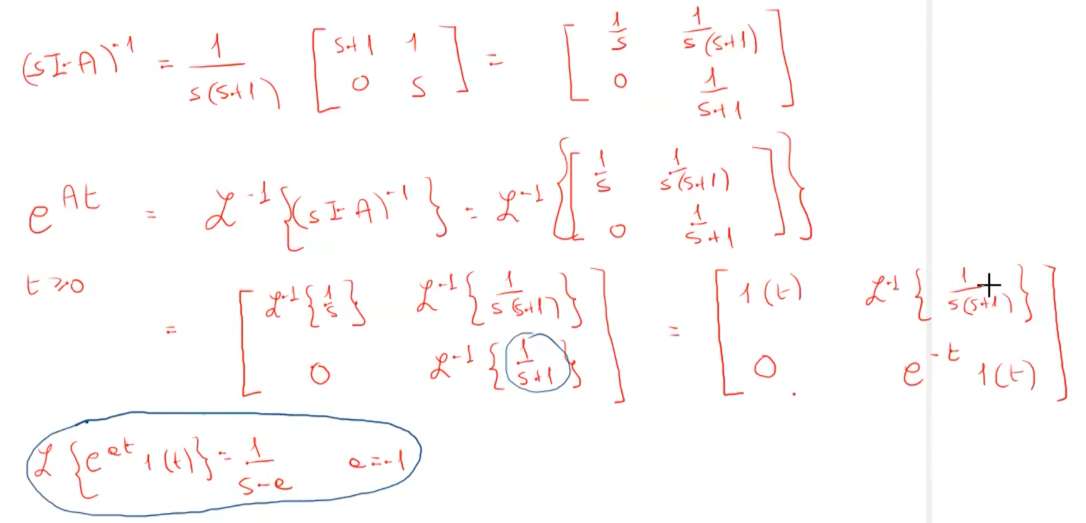 (sI-A)^-1 = 1/(s(s+1)) [ s+1 1 ; 0 s ] = [ 1/s 1/(s(s+1)) ; 0 1/(s+1) ]
e^At = ℒ^-1{(sI-A)^-1} = ℒ^-1{[ 1/s 1/(s(s+1)) ; 0 1/(s+1) ]}
t≥0
= [ ℒ^-1{1/s} ℒ^-1{1/(s(s+1))} ; 0 ℒ^-1{1/(s+1)} ] = [ 1(t) ℒ^-1{1/(s(s+1))} ; 0 e^-t 1(t) ]
ℒ{e^at 1(t)} = 1/(s-a) a=-1